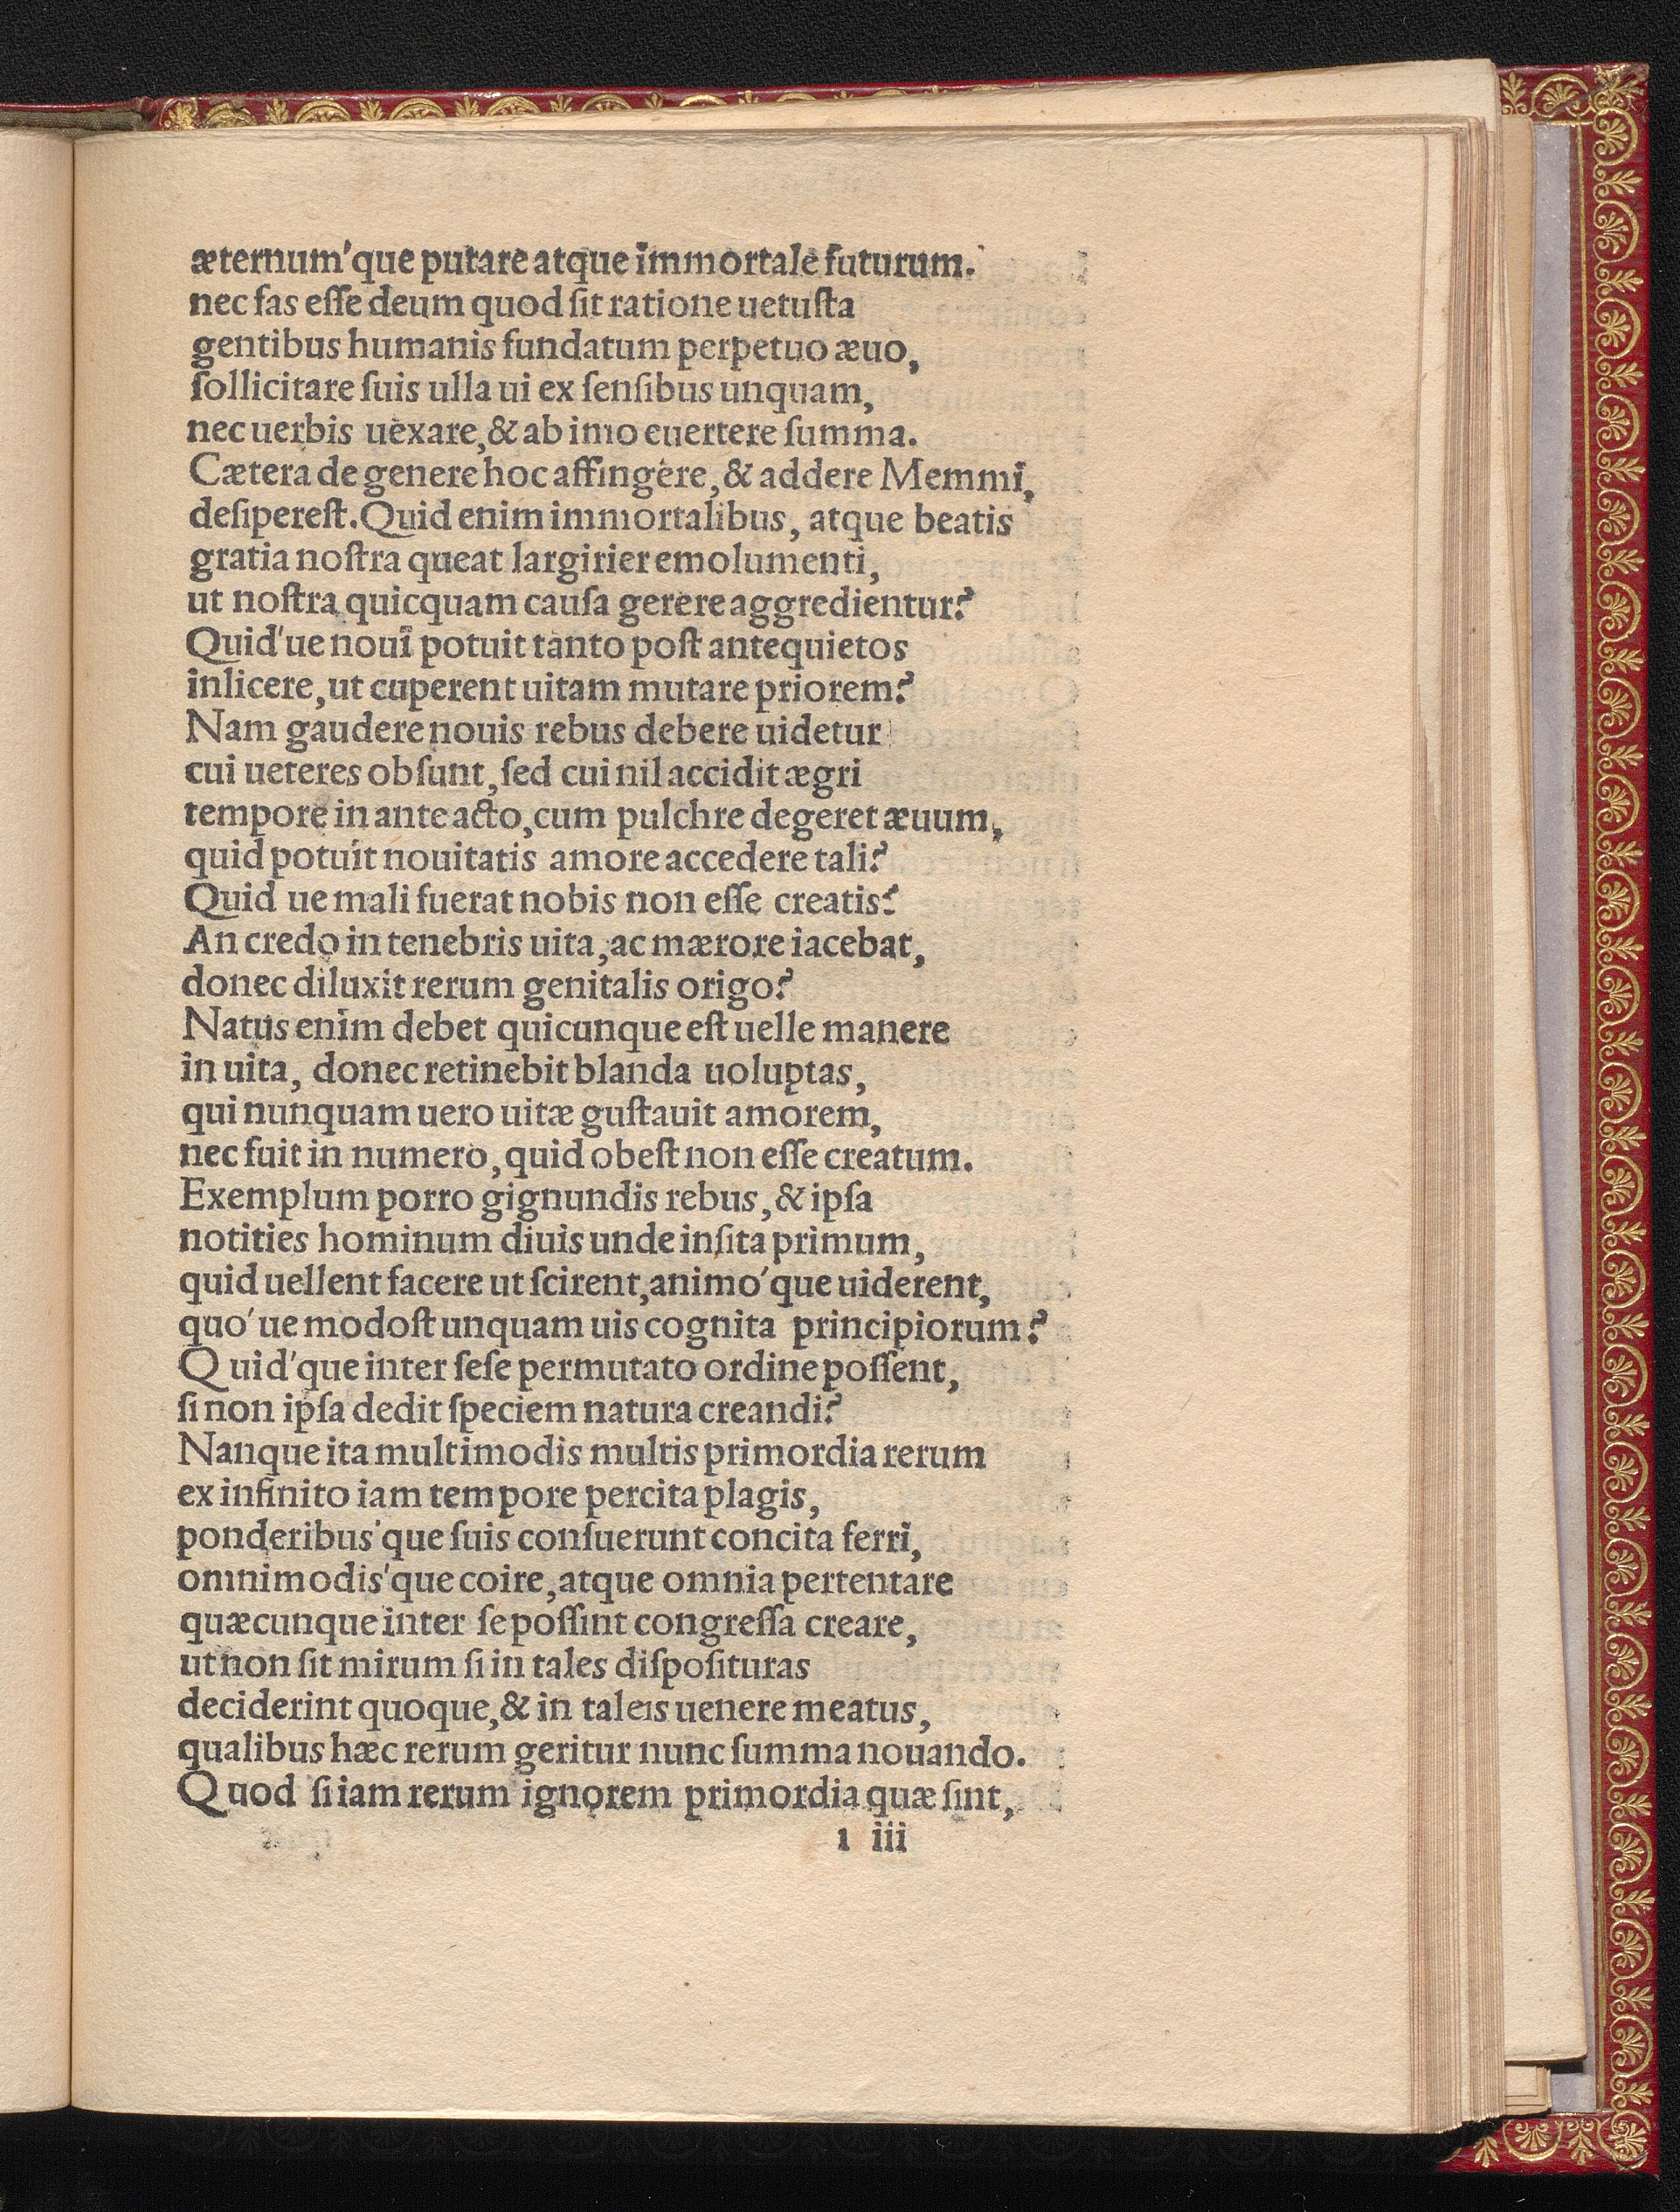 æternum'que putare atque immortale futurum.
nec fas eſſe deum quod ſit ratione uetuſta
gentibus humanis fundatum perpetuo æuo,
ſollicitare ſuis ulla ui ex ſenſibus unquam,
nec uerbis uexare, & ab imo euertere ſumma.
Cætera de genere hoc affingere, & addere Memmi,
deſipereſt. Quid enim immortalibus, atque beatis
gratia noſtra queat largirier emolumenti,
ut noſtra quicquam cauſa gerere aggredientur?
Quid'ue noui potuit tanto poſt ante quietos
inlicere, ut cuperent uitam mutare priorem?
Nam gaudere nouis rebus debere uidetur
cui ueteres obſunt, ſed cui nil accidit ægri
tempore in ante acto, cum pulchre degeret æuum,
quid potuit nouitatis amore accedere tali?
Quid ue mali fuerat nobis non eſſe creatis?
An credo in tenebris uita, ac mærore iacebat,
donec diluxit rerum genitalis origo?
Natus enim debet quicunque eſt uelle manere
in uita, donec retinebit blanda uoluptas,
qui nunquam uero uitæ guſtauit amorem,
nec fuit in numero, quid obeſt non eſſe creatum.
Exemplum porro gignundis rebus, & ipſa
notities hominum diuis unde inſita primum,
quid uellent facere ut ſcirent, animo'que uiderent,
quo'ue modoſt unquam uis cognita principiorum?
Quid'que inter ſeſe permutato ordine poſſent,
ſi non ipſa dedit ſpeciem natura creandi?
Nanque ita multimodis multis primordia rerum
ex infinito iam tempore percita plagis,
ponderibus'que ſuis conſuerunt concita ferri,
omnimodis'que coire, atque omnia pertentare
quæcunque inter ſe poſſint congreſſa creare,
ut non ſit mirum ſi in tales diſpoſituras
deciderint quoque, & in taleis uenere meatus,
qualibus hæc rerum geritur nunc ſumma nouando.
Quod ſi iam rerum ignorem primordia quæ ſint,
l iii